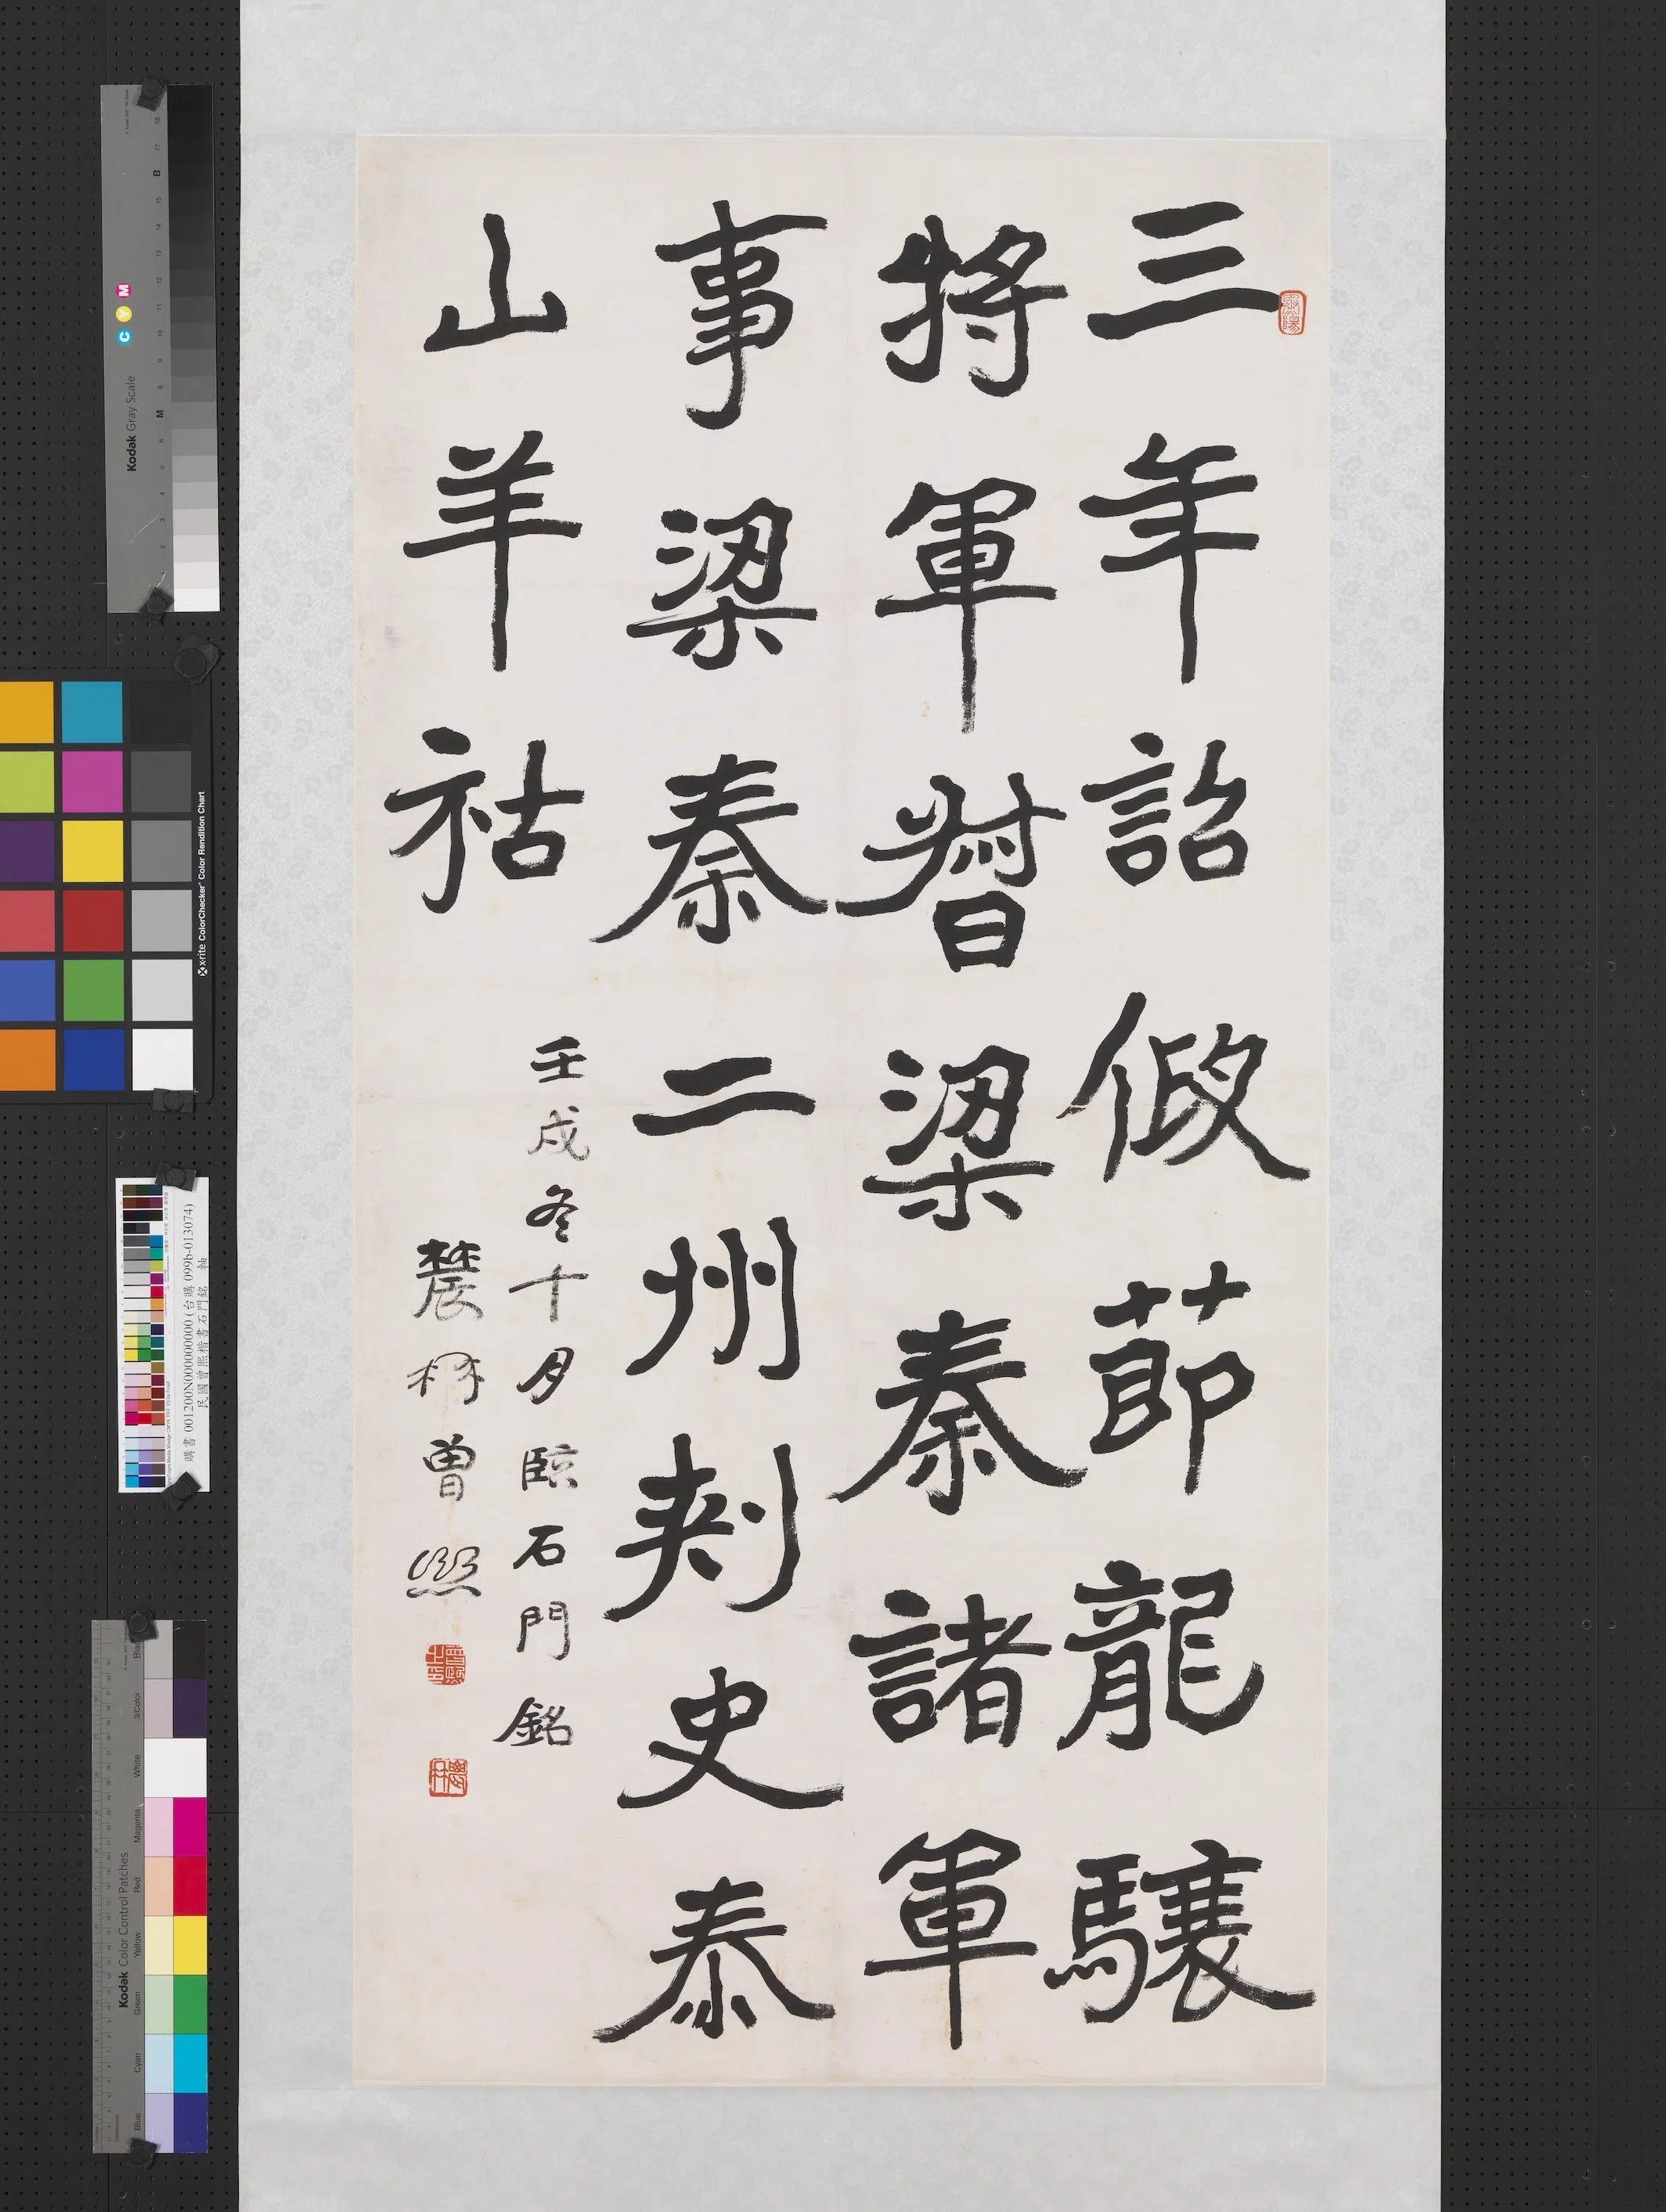 三年詔假節龍驤
將軍督梁秦諸軍
事梁秦二州刺史泰
山羊祉
壬戌冬十月臨石門銘
農髯曾熙
Kodak Gray Scale
C Y M
B
M
x-rite ColorChecker Color Rendition Chart
購書 001200N000000000 (台購 099b-013074)
民國曾熙楷書石門銘 軸
Kodak Color Control Patches
Blue
Cyan
Green
Yellow
Red
Magenta
White
3/Color